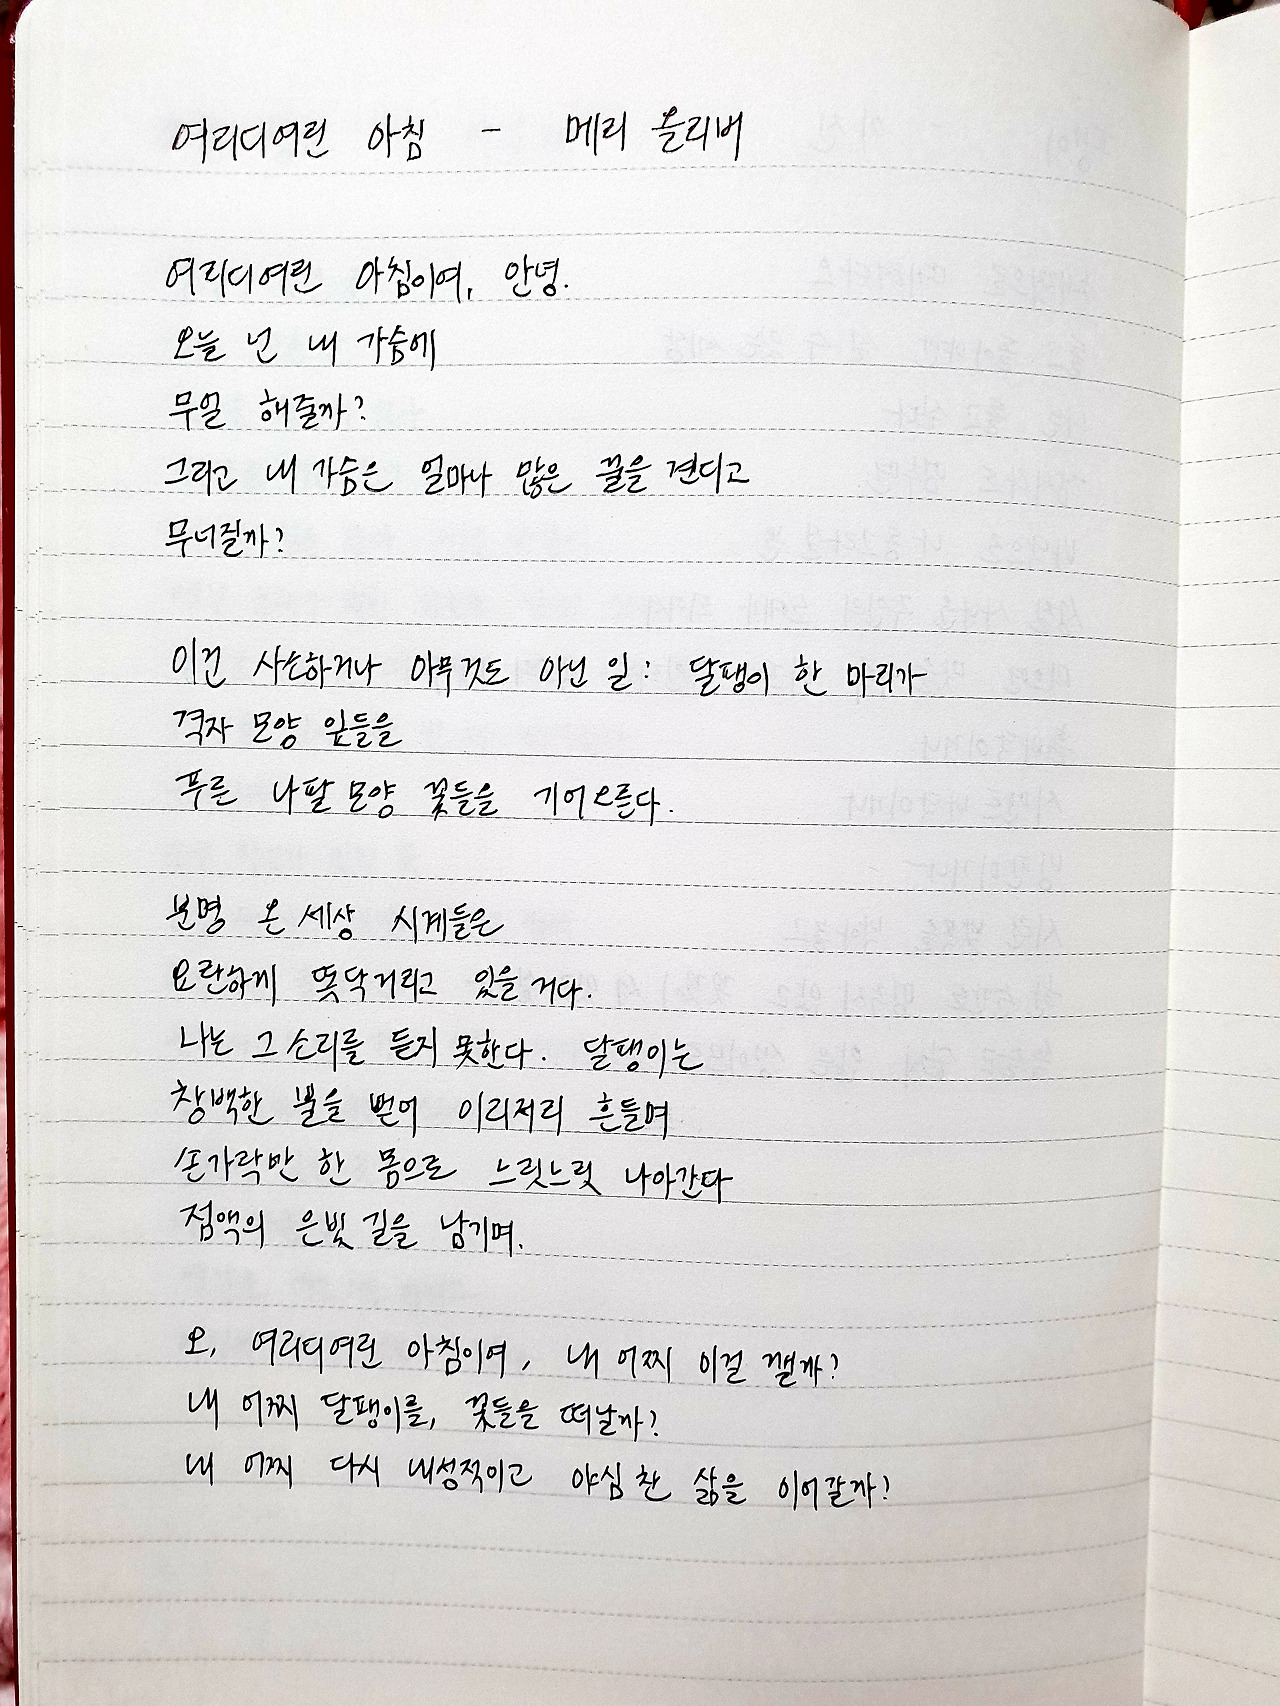 여리디여린 아침 - 메리 올리버
여리디여린 아침이여, 안녕.
오늘 넌 내 가슴에
무얼 해줄까?
그리고 내 가슴은 얼마나 많은 꿀을 견디고
무너질까?
이건 사소하거나 아무것도 아닌 일: 달팽이 한 마리가
격자 모양 잎들을
푸른 나팔 모양 꽃들을 기어오른다.
분명 온 세상 시계들은
요란하게 똑닥거리고 있을 거다.
나는 그 소리를 듣지 못한다. 달팽이는
창백한 뿔을 뻗어 이리저리 흔들며
손가락만 한 몸으로 느릿느릿 나아간다
점액의 은빛 길을 남기며.
오, 여리디여린 아침이여, 내 어찌 이걸 깰까?
내 어찌 달팽이를, 꽃들을 떠날까?
내 어찌 다시 내성적이고 야심 찬 삶을 이어갈까?